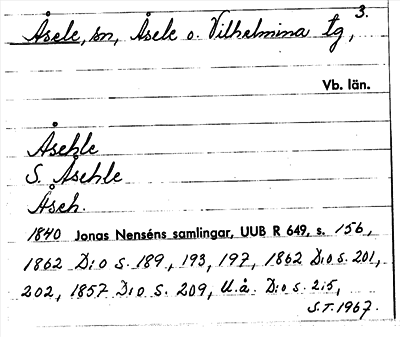 3.
Åsele, sn, Åsele o. Vilhelmina tg,
Vb. län.
Åsehle
S. Åsehle
Åseh.
1840 Jonas Nenséns samlingar, UUB R 649, s. 156,
1862 D:o s. 189, 193, 197, 1862 D:o s. 201,
202, 1857 D:o s. 209, U.å. D:o s. 215,
S.T. 1967.